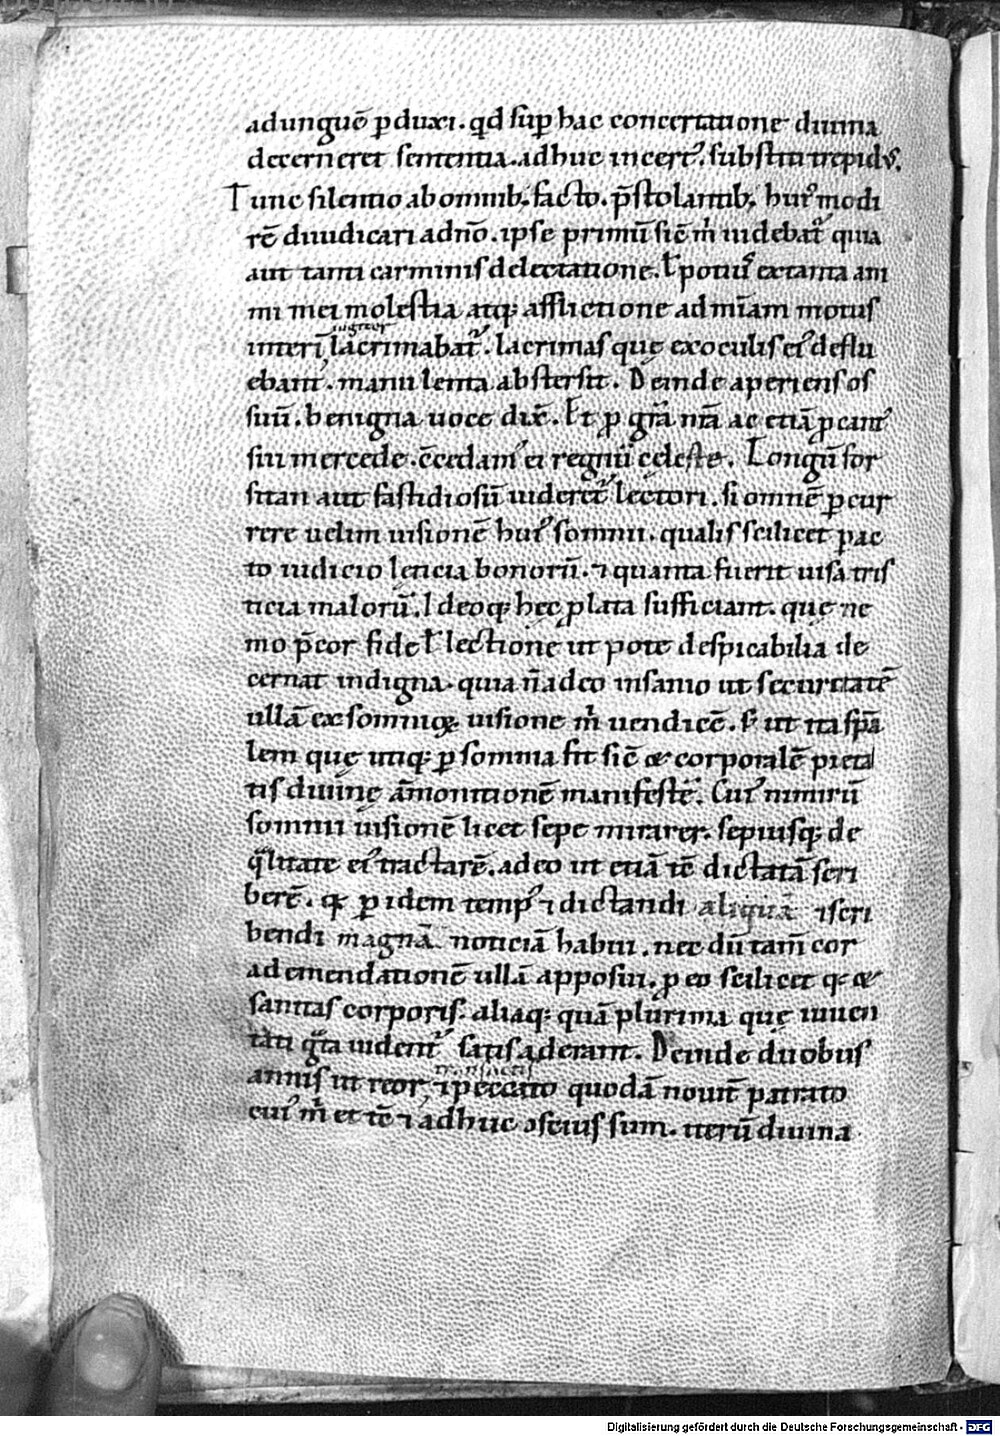 adunguē ꝑduxi. qd̄ suꝑ hac concertatione diuina
decerneret sententia. adhuc incert᷒. substiti trepid᷒.
Tunc silentio ab omnib; facto. p̄stolantib; hui᷒modi
rē diuudicari adnō. ipse primū sic̄ m̄ uidebat᷑ quia
aut tanti carminis delectatione. ł poti᷒ ex tanta ani
mi mei molestia atq; afflictione ad mīam motus
interī lacrimabat᷑. lacrimas quę ex oculis ei᷒ deflu
ebant. manu lenta abstersit. Deinde aperiens os
suū. benigna uoce dix̄. Et ꝓ grā nrā ac etiā ꝓ cant᷒
sui mercede. c̄cedam᷒ ei regnū cęleste. Longū for
sitan aut fastidiosū uideret᷑ lectori. si omnē ꝑcur
rere uelim uisionē hui᷒ somnii. qualis scilicet ꝑac
to iudicio leticia bonorū. ⁊ quanta fuerit uisa tris
ticia malorū. Ideoq; hęc ꝓlata sufficiant. quę ne
mo p̄cor fide ł lectione ut pote despicabilia de
cernat indigna. quia n̄ adeo insanio ut securitatē
ullā ex somnioꝝ uisione m̄ uendicē. s; ut ita sp̄a
lem quę utiq; ꝑ somnia fit sic̄ & corporalē pieta
tis diuinę āmonitionē manifestē. Cui᷒ nimirū
somnii uisionē licet sepe mirarer. sepiusq; de
q̄litate ei᷒ tractarē. adeo ut etiā tē dictatā scri
berē. q; ꝑ idem temp᷒ ⁊ dictandi aliquā ⁊ scri
bendi magnā noticiā habui. nec dū tam̄ cor
ad emendationē ullā apposui. ꝓ eo scilicet q; &
sanitas corporis. aliaq; quā plurima quę iuuen
tati g̃ta uident᷑ satis aderant. Deinde duobus
transactis
annis ut reor ⁊ peccato quodā nouit̄ patrato
cui᷒ m̄ et tē ⁊ adhuc ↄscius sum. iterū diuina
Digitalisierung gefördert durch die Deutsche Forschungsgemeinschaft - DFG